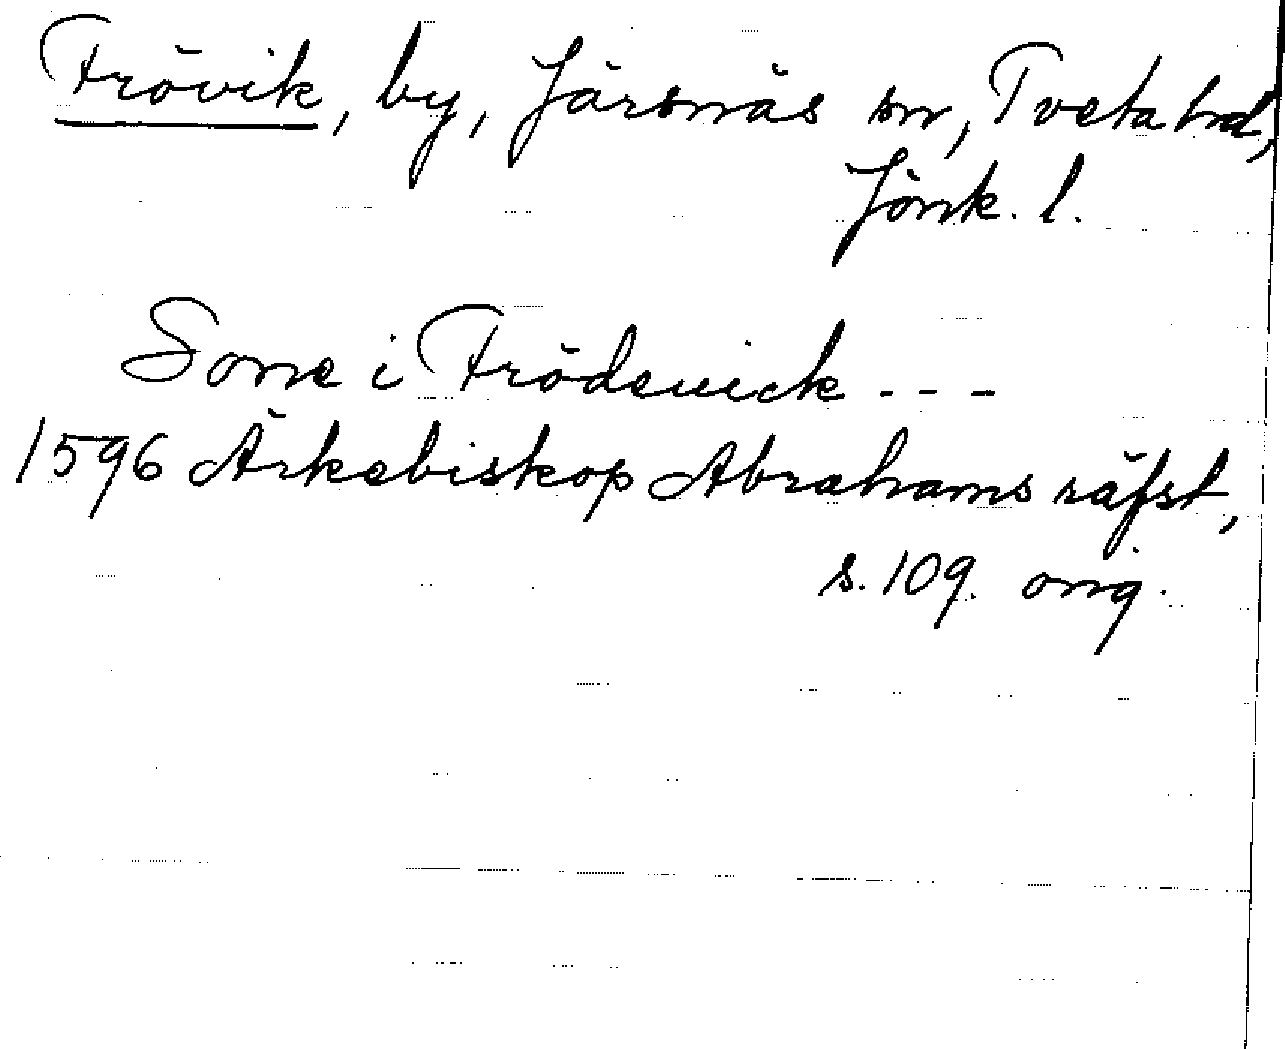 Frövik, by, Järsnäs sn, Tveta hd,
Jönk. l.
Sone i Frödeuick ---
1596 Ärkebiskop Abrahams räfst,
s. 109. orig.